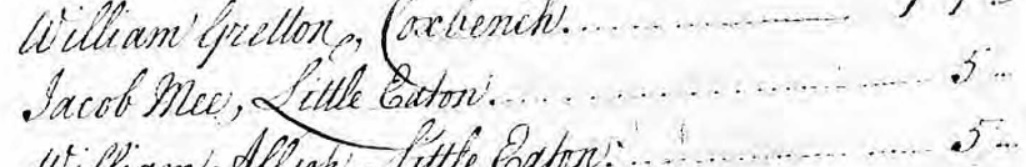 William Gretton, Coxbench.
Jacob Mee, Little Eaton. 5
William Little Eaton. 5